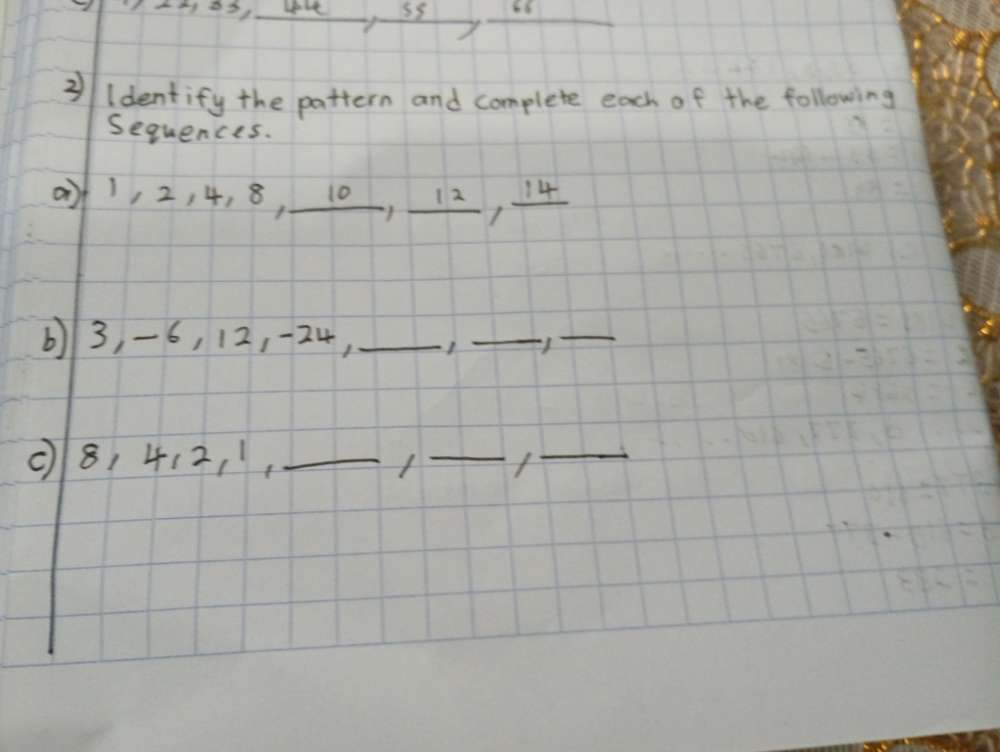 33, 44, 55, 66
2) Identify the pattern and complete each of the following
Sequences.
a) 1, 2, 4, 8, 10, 12, 14
b) 3, -6, 12, -24, ___, ___, ___
c) 8, 4, 2, 1, ___, ___, ___